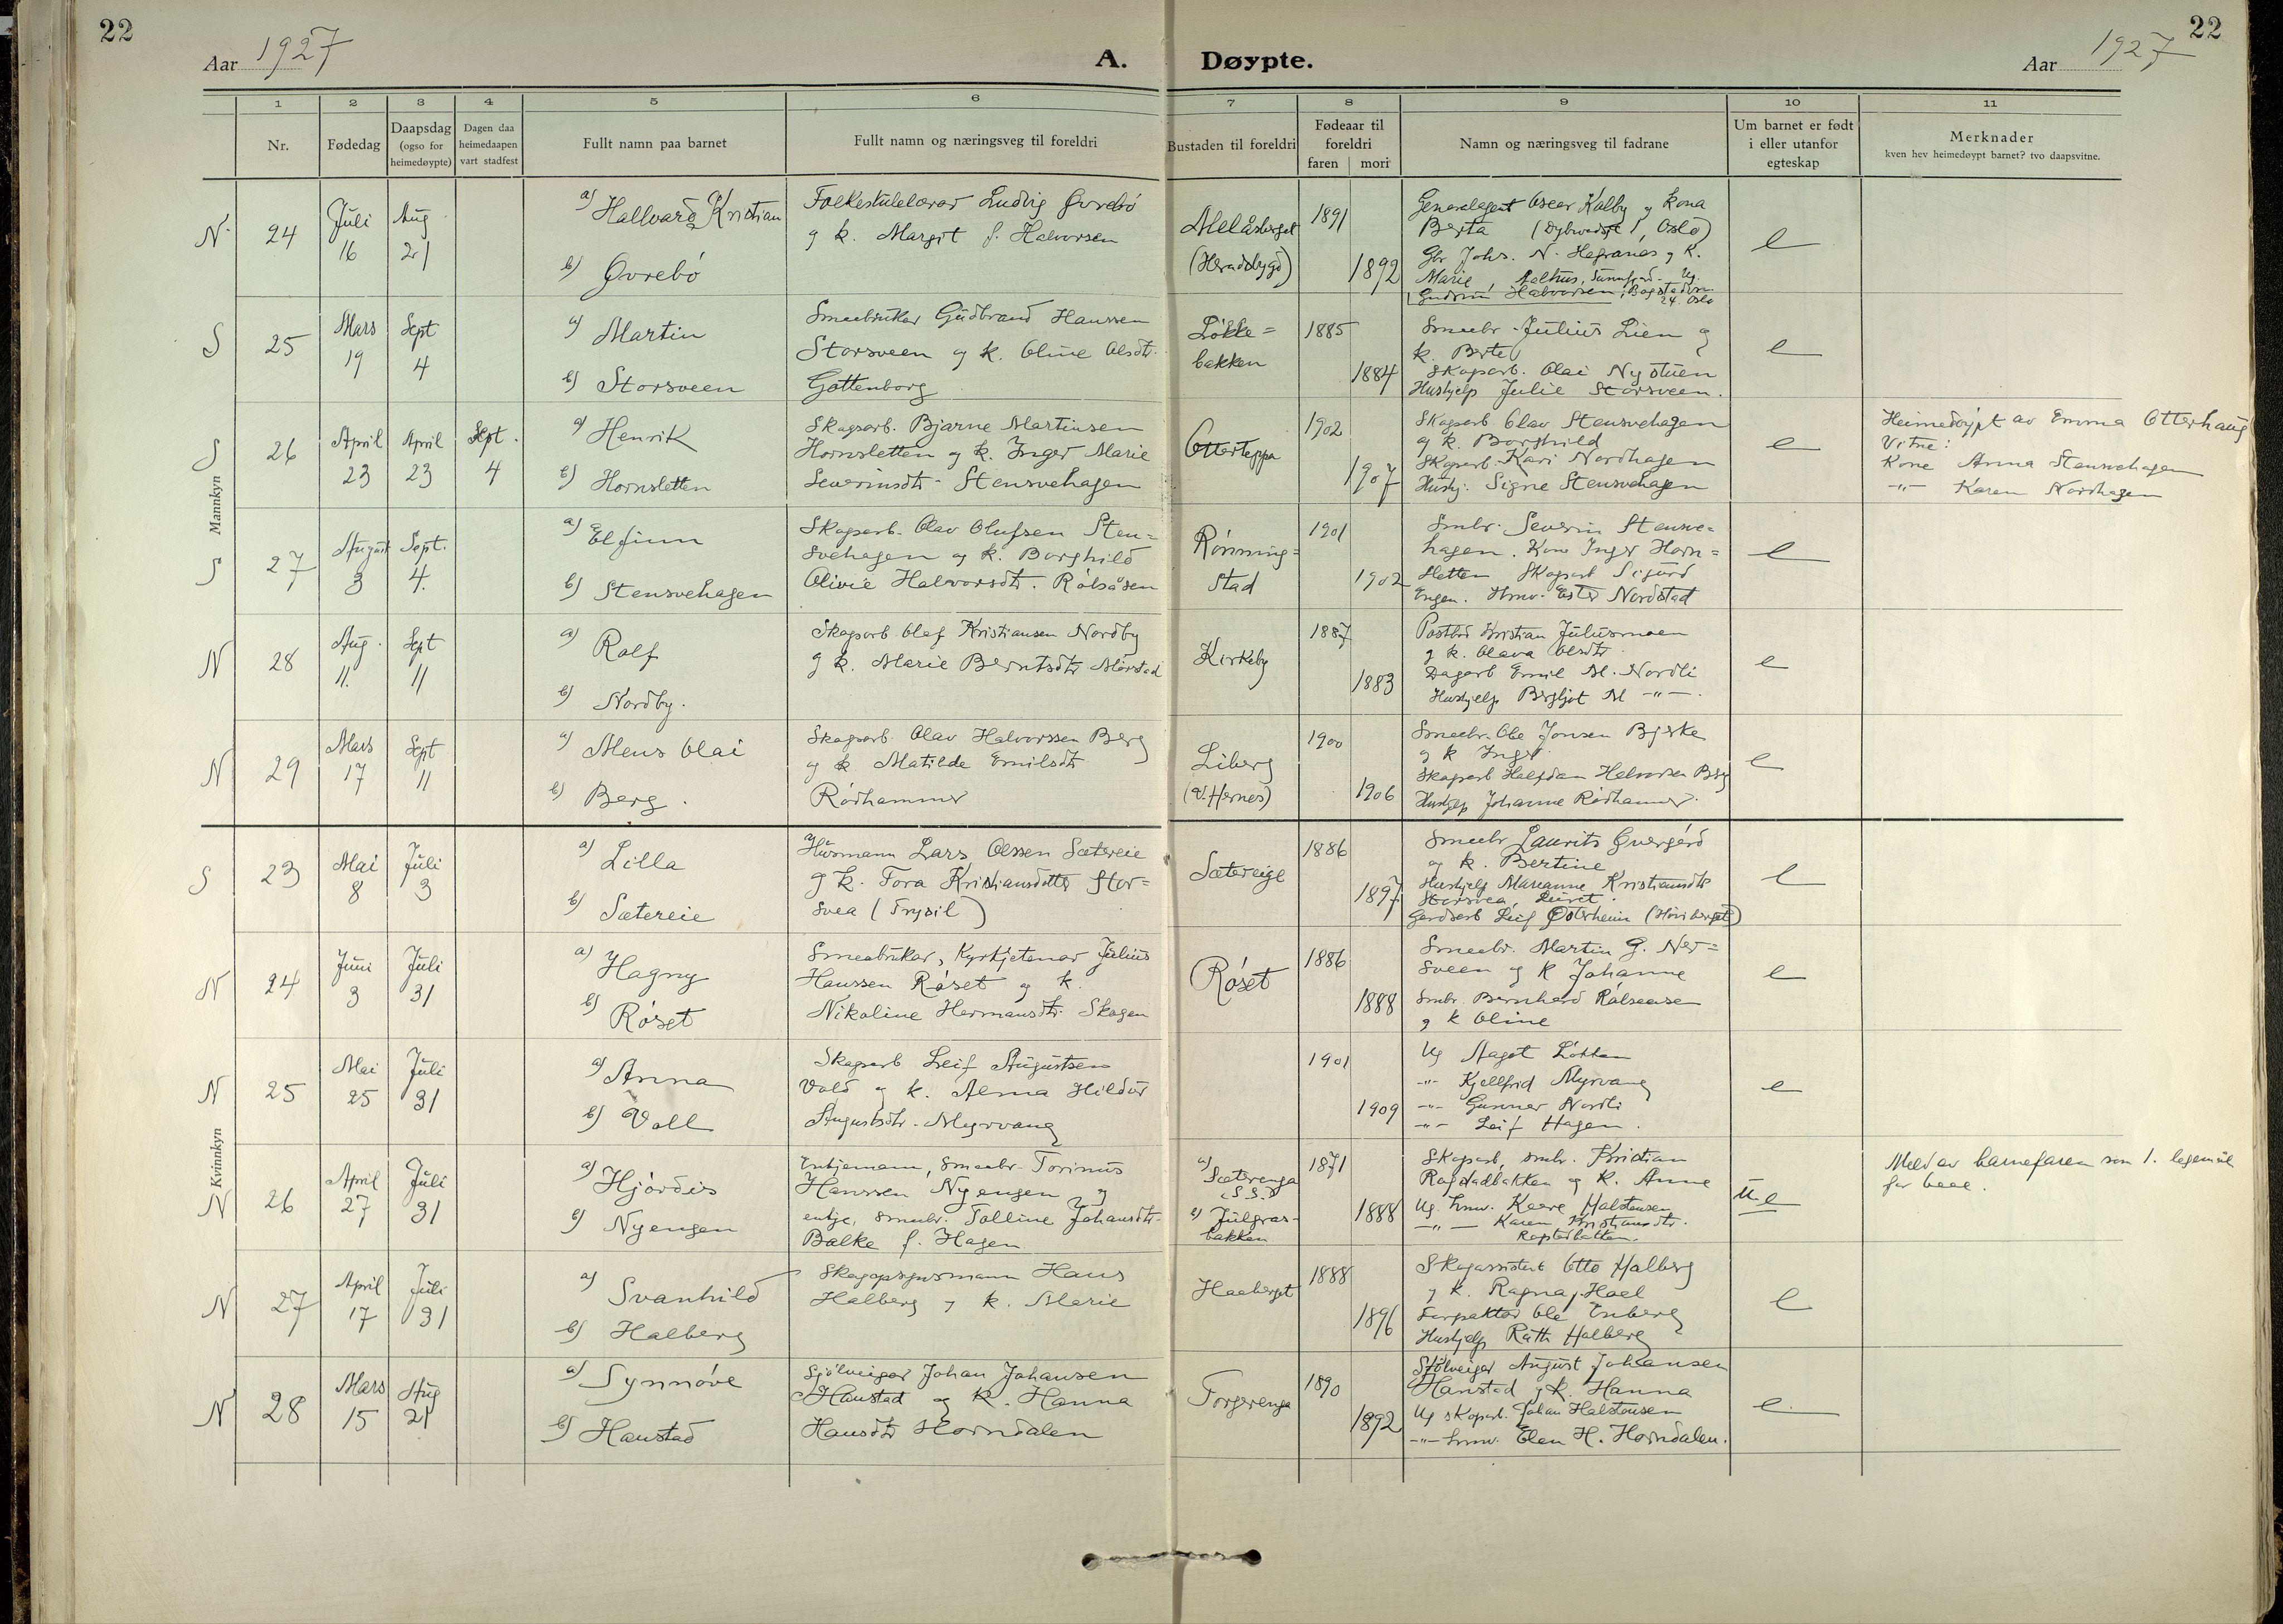 22
22
Aar 1927
A. Døypte.
Aar 1927
1 2 3 4 5 6 7 8 9 10 11
Nr.
Fødedag
Daapsdag
(ogso for
heimedøypte)
Dagen daa
heimedaapen
vart stadfest
Fullt namn paa barnet
Fullt namn og næringsveg til foreldri
Bustaden til foreldri
Fødeaar til
foreldri
faren mori
Namn og næringsveg til fadrane
Um barnet er født
i eller utanfor
egteskap
Merknader
kven hev heimedøypt barnet? tvo daapsvitne.
Mannkyn
N 24
Juli
16
Aug
21
a) Hallvard Kristian
b) Øvrebö
Folkeskulelærar Ludvig Øvrebö
g k. Margit f. Halvorsen
(Heradsbygd)
1891
1892
Generalagent Oscar Kolby g kona
Berta Oslo)
Gbr Johs. N. Hegranes g k.
Marie
Gudrun Halvorsen, 24. Oslo
e
S 25
Mars
19
Sept
4
a) Martin
b) Storsveen
Smaabrukar Gudbrand Hanssen
Storsveen og k. Oline Olsdtr.
Gottenborg
Løkke=
bakken
1885
1884
Smaabr. Julius Lien og
k. Berte
Skogarb. Olai Nystuen
Hushjelp Julie Storsveen.
e
S 26
April
23
April
23
Sept.
4
a) Henrik
b) Hornsletten
Skogsarb. Bjarne Martinsen
Hornsletten og k. Inger Marie
Severinsdtr. Stensvehagen
Otterteppa
1902
1907
Skogarb Olav Stensvehagen
og k. Borghild
Skogarb. Kari Nordhagen
Hushj. Signe Stensvehagen
e
Heimedöypt av Emma Otterhaug
Vitne:
Kone Anna Stensvehagen
-"- Karen Nordhagen
S 27
August
3
Sept.
4.
a) Elfinn
b) Stensvehagen
Skogsarb. Olav Olufsen Sten=
svehagen og k. Borghild
Olivie Halvorsdtr. Rölsåsen
Rönning=
stad
1901
1902
Smbr. Severin Stensve=
hagen. Kone Inger Horn=
sletten Skogarb Sigurd
Engen. Hmv. Ester Nordstad
e
N 28
Aug.
11.
Sept
11
a) Rolf
b) Nordby.
Skogsarb. Olaf Kristiansen Nordby
g k. Marie Berntsdtr Mörstad
Kirkeby
1887
1883
Postbud Kristian Julusmoen
g k. Olava Olsdtr
Dagarb Emil M. Nordli
Hushjelp Bergljot M -"-.
e
N 29
Mars
17
Sept
11
a) Mens Olai
b) Berg.
Skogsarb. Olav Halvorssen Berg
og k. Matilde Emilsdtr
Rödhammer
Liberg
(V. Hernes)
1900
1906
Smaabr. Ole Jonsen Bjerke
og k Inger
Skogarb Halfdan Halvorsen Berg
Hushjelp Johanne Rödhammer.
e
Kvinnkyn
S 23
Mai
8
Juli
3
a) Lilla
b) Sætereie
Husmann Lars Olssen Sætereie
g k. Tora Kristiansdotter Stor=
svea (Trysil)
Sætereige
1886
1897
Smaabr Laurits
og k. Bertine
Hushjelp Marianne Kristiansdtr
Storsvea,
Gardsarb Leif Österheim
e
N 24
Juni
3
Juli
31
a) Hagny
b) Röset
Smaabrukar, Kyrkjetenar Julius
Hanssen Röset og k.
Nikoline Hermansdtr. Skogen
Röset
1886
1888
Smaabr. Martin G. Ner=
sveen og k Johanne
Smbr. Bernhard Rölsaasen
g k Oline
e
N 25
Mai
25
Juli
31
a) Anna
b) Voll
Skogsarb Leif Augustsen
Vold g k. Alma Hildur
Augustsdtr. Myrvang
1901
1909
Ug Aagot Lökken
-"- Kjellfrid Myrvang
-"- Gunnar Nordli
-"- Leif Hagen.
e
N 26
April
27
Juli
31
a) Hjördis
b) Nyengen
Enkjemann, Smaabr. Torinus
Hanssen Nyengen g
enkje, smaabr. Tolline Johansdtr.
Balke f. Hagen
a) Sæterenga
(S.S.)
b) Julgras-
bakken
1871
1888
Skogarb, smbr. Kristian
Rogstadbakken og k. Anne
Ug. hmv. Kaare Halstensen
-"- Karen Kristiansdtr.
Rogstadbakken.
U.e
Meld av barnefaren som 1. legemål
for baae.
N 27
April
17
Juli
31
a) Svanhild
b) Halberg
Skogopsynsmann Hans
Halberg g k. Marie
Haaberget
1888
1896
Skogassistent Otto Halberg
g k. Ragna, Hoel
Inspektör Ole Enberg
Hushjelp Ruth Halberg
e
N 28
Mars
15
Aug
21
a) Synnöve
b) Hanstad
Sjölveigar Johan Johansen
Hanstad og k. Hanna
Hansdtr Horndalen
Torgerenga
1890
1892
Sjölveigar August Johansen
Hanstad g k. Hanna
Ug skogarb. Johan Halstensen
-"- hmv. Elen H. Horndalen.
e